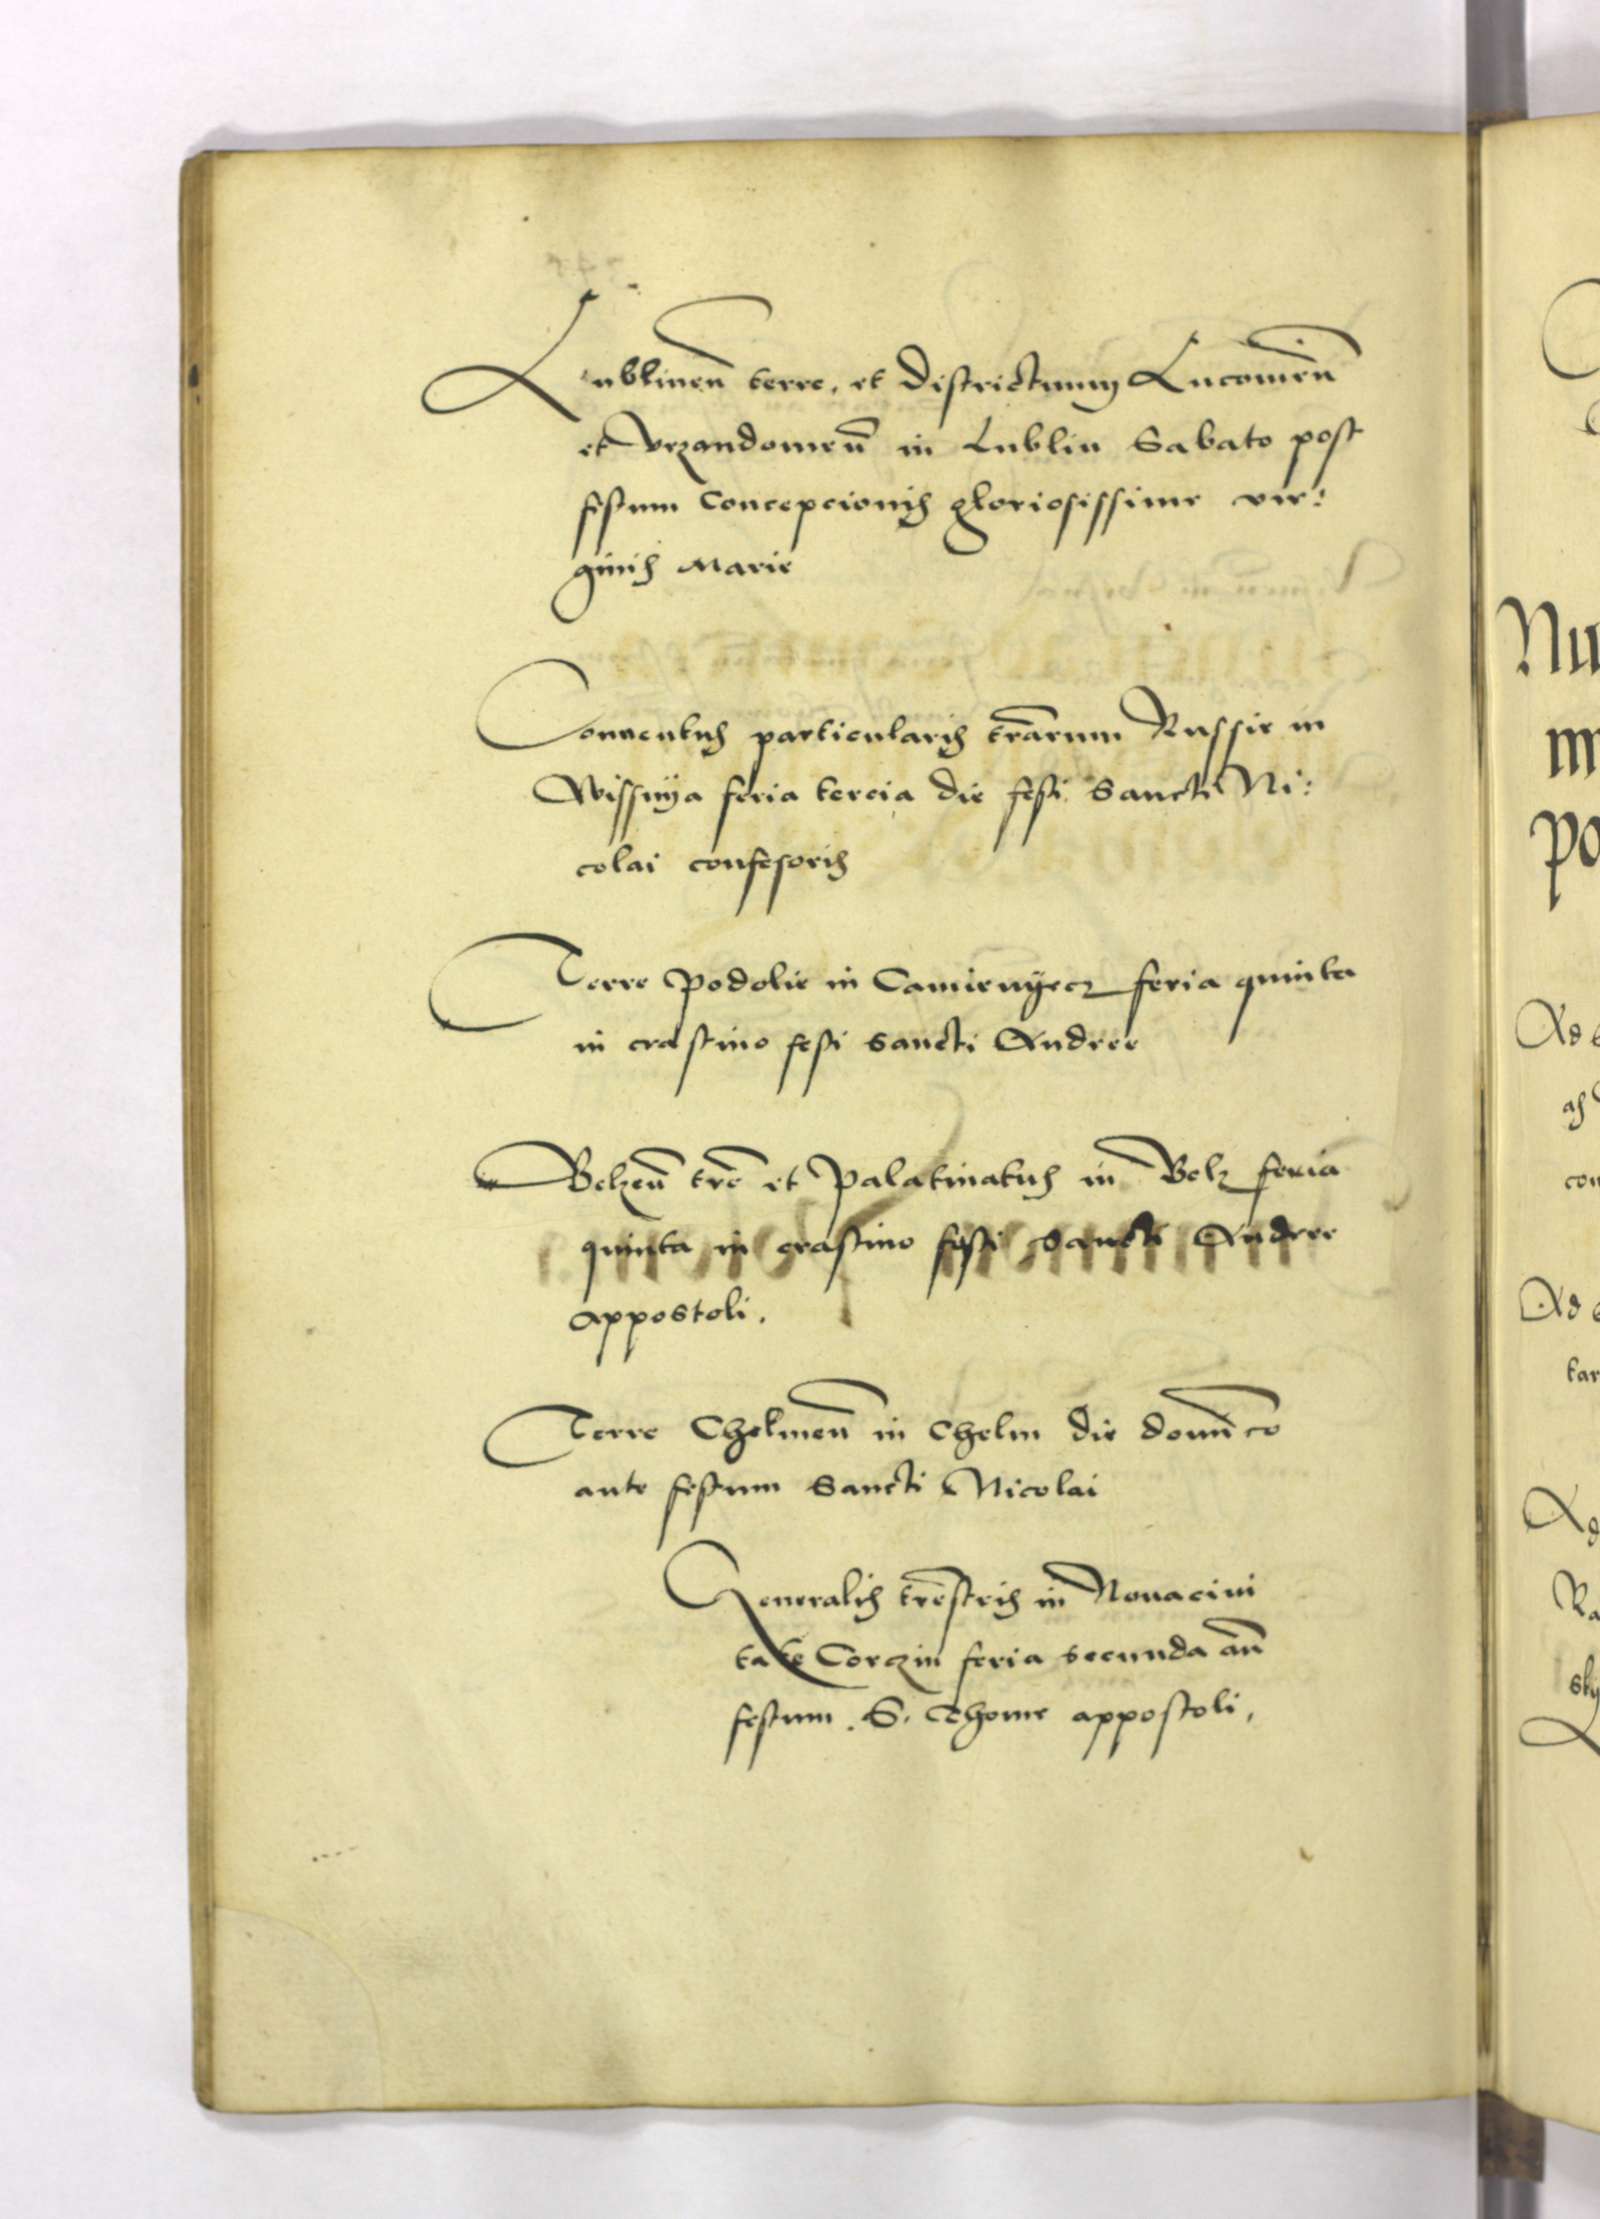 Lublinen̄ terre, et districtuum Lucouien̄
et Vrzendowien̄ in Lublin Sabato post
festum Concepcionis gloriosissime vir:
ginis Marie
Conuentus particularis tr̄arum Russie in
Wissnÿa feria tercia die festi Sancti Ni:
colai confesoris
Terre Podolie in Camienÿecz feria quinta
in crastino festi Sancti Andree
Belzen̄ trē et Palatinatus in Belz feria
quinta in crastino festi Sancti Andree
appostoli.
Terre Chelmen̄ in Chelm die domīco
ante festum Sancti Nicolai
Generalis trēstris in Nouaciui
tate Corczin feria secunda an̄
festum . S. Thome appostoli,
Nu
po
Ad
as
con
Ad
tar
Ad
Ra